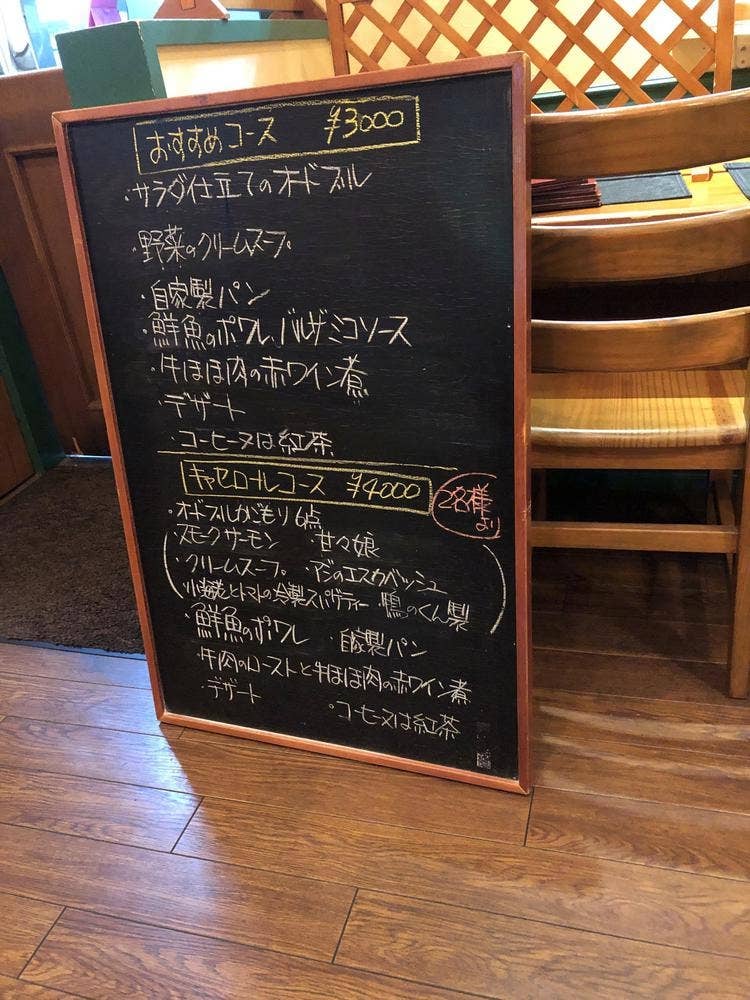 おすすめコース ¥3000
・サラダ仕立てのオードブル
・野菜のクリームスープ。
・自家製パン
・鮮魚のポワレ、バルサミコソース
・牛ほほ肉の赤ワイン煮
・デザート
・コーヒー又は紅茶
キャセロールコース ¥4000
2名様より
・オードブルかごもり 6点
・スモークサーモン ・甘々娘
・クリームスープ。 ・アジのエスカベッシュ
・小海老とトマトの冷製スパゲティー ・鴨のくん製
・鮮魚のポワレ ・自家製パン
・牛肉のローストと牛ほほ肉の赤ワイン煮
・デザート ・コーヒー又は紅茶